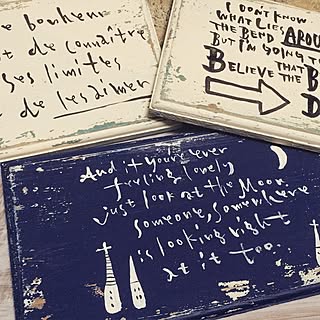 e bonheur
t de connaître
ses limites
t de les aimer
I DON'T KNOW
WHAT LIES AROU
THE BEND
BUT I'M GOING TO
THAT
BELIEVE THE B
And if you're ever
feeling lonely
just look at the Moon
someone, somewhere
is looking right
at it too..